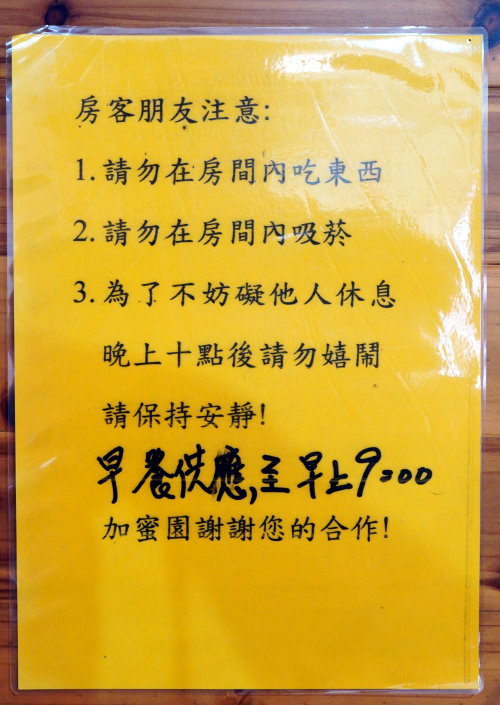 房客朋友注意:
1. 請勿在房間內吃東西
2. 請勿在房間內吸菸
3. 為了不妨礙他人休息
晚上十點後請勿嬉鬧
請保持安靜!
早餐供應,至早上9:00
加蜜園謝謝您的合作!